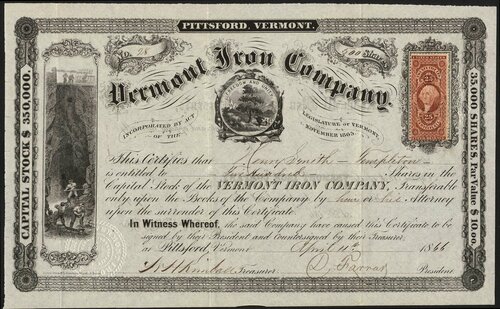 PITTSFORD, VERMONT.
No. 28
600 Shares
Vermont Iron Company.
INCORPORATED BY ACT OF THE
LEGISLATURE OF VERMONT, NOVEMBER 1865
CAPITAL STOCK $350,000.
35,000 SHARES. Par Value $10.00.
This Certifies that Henry Smith - Templeton -
is entitled to Six hundred Shares in the
Capital Stock of the VERMONT IRON COMPANY, Transferable
only upon the Books of the Company by him or his Attorney
upon the surrender of this Certificate.
In Witness Whereof, the said Company have caused this Certificate to be
signed by their President and Countersigned by their Treasurer,
at Pittsford, Vermont April 1866
Treasurer
D. Farrar President